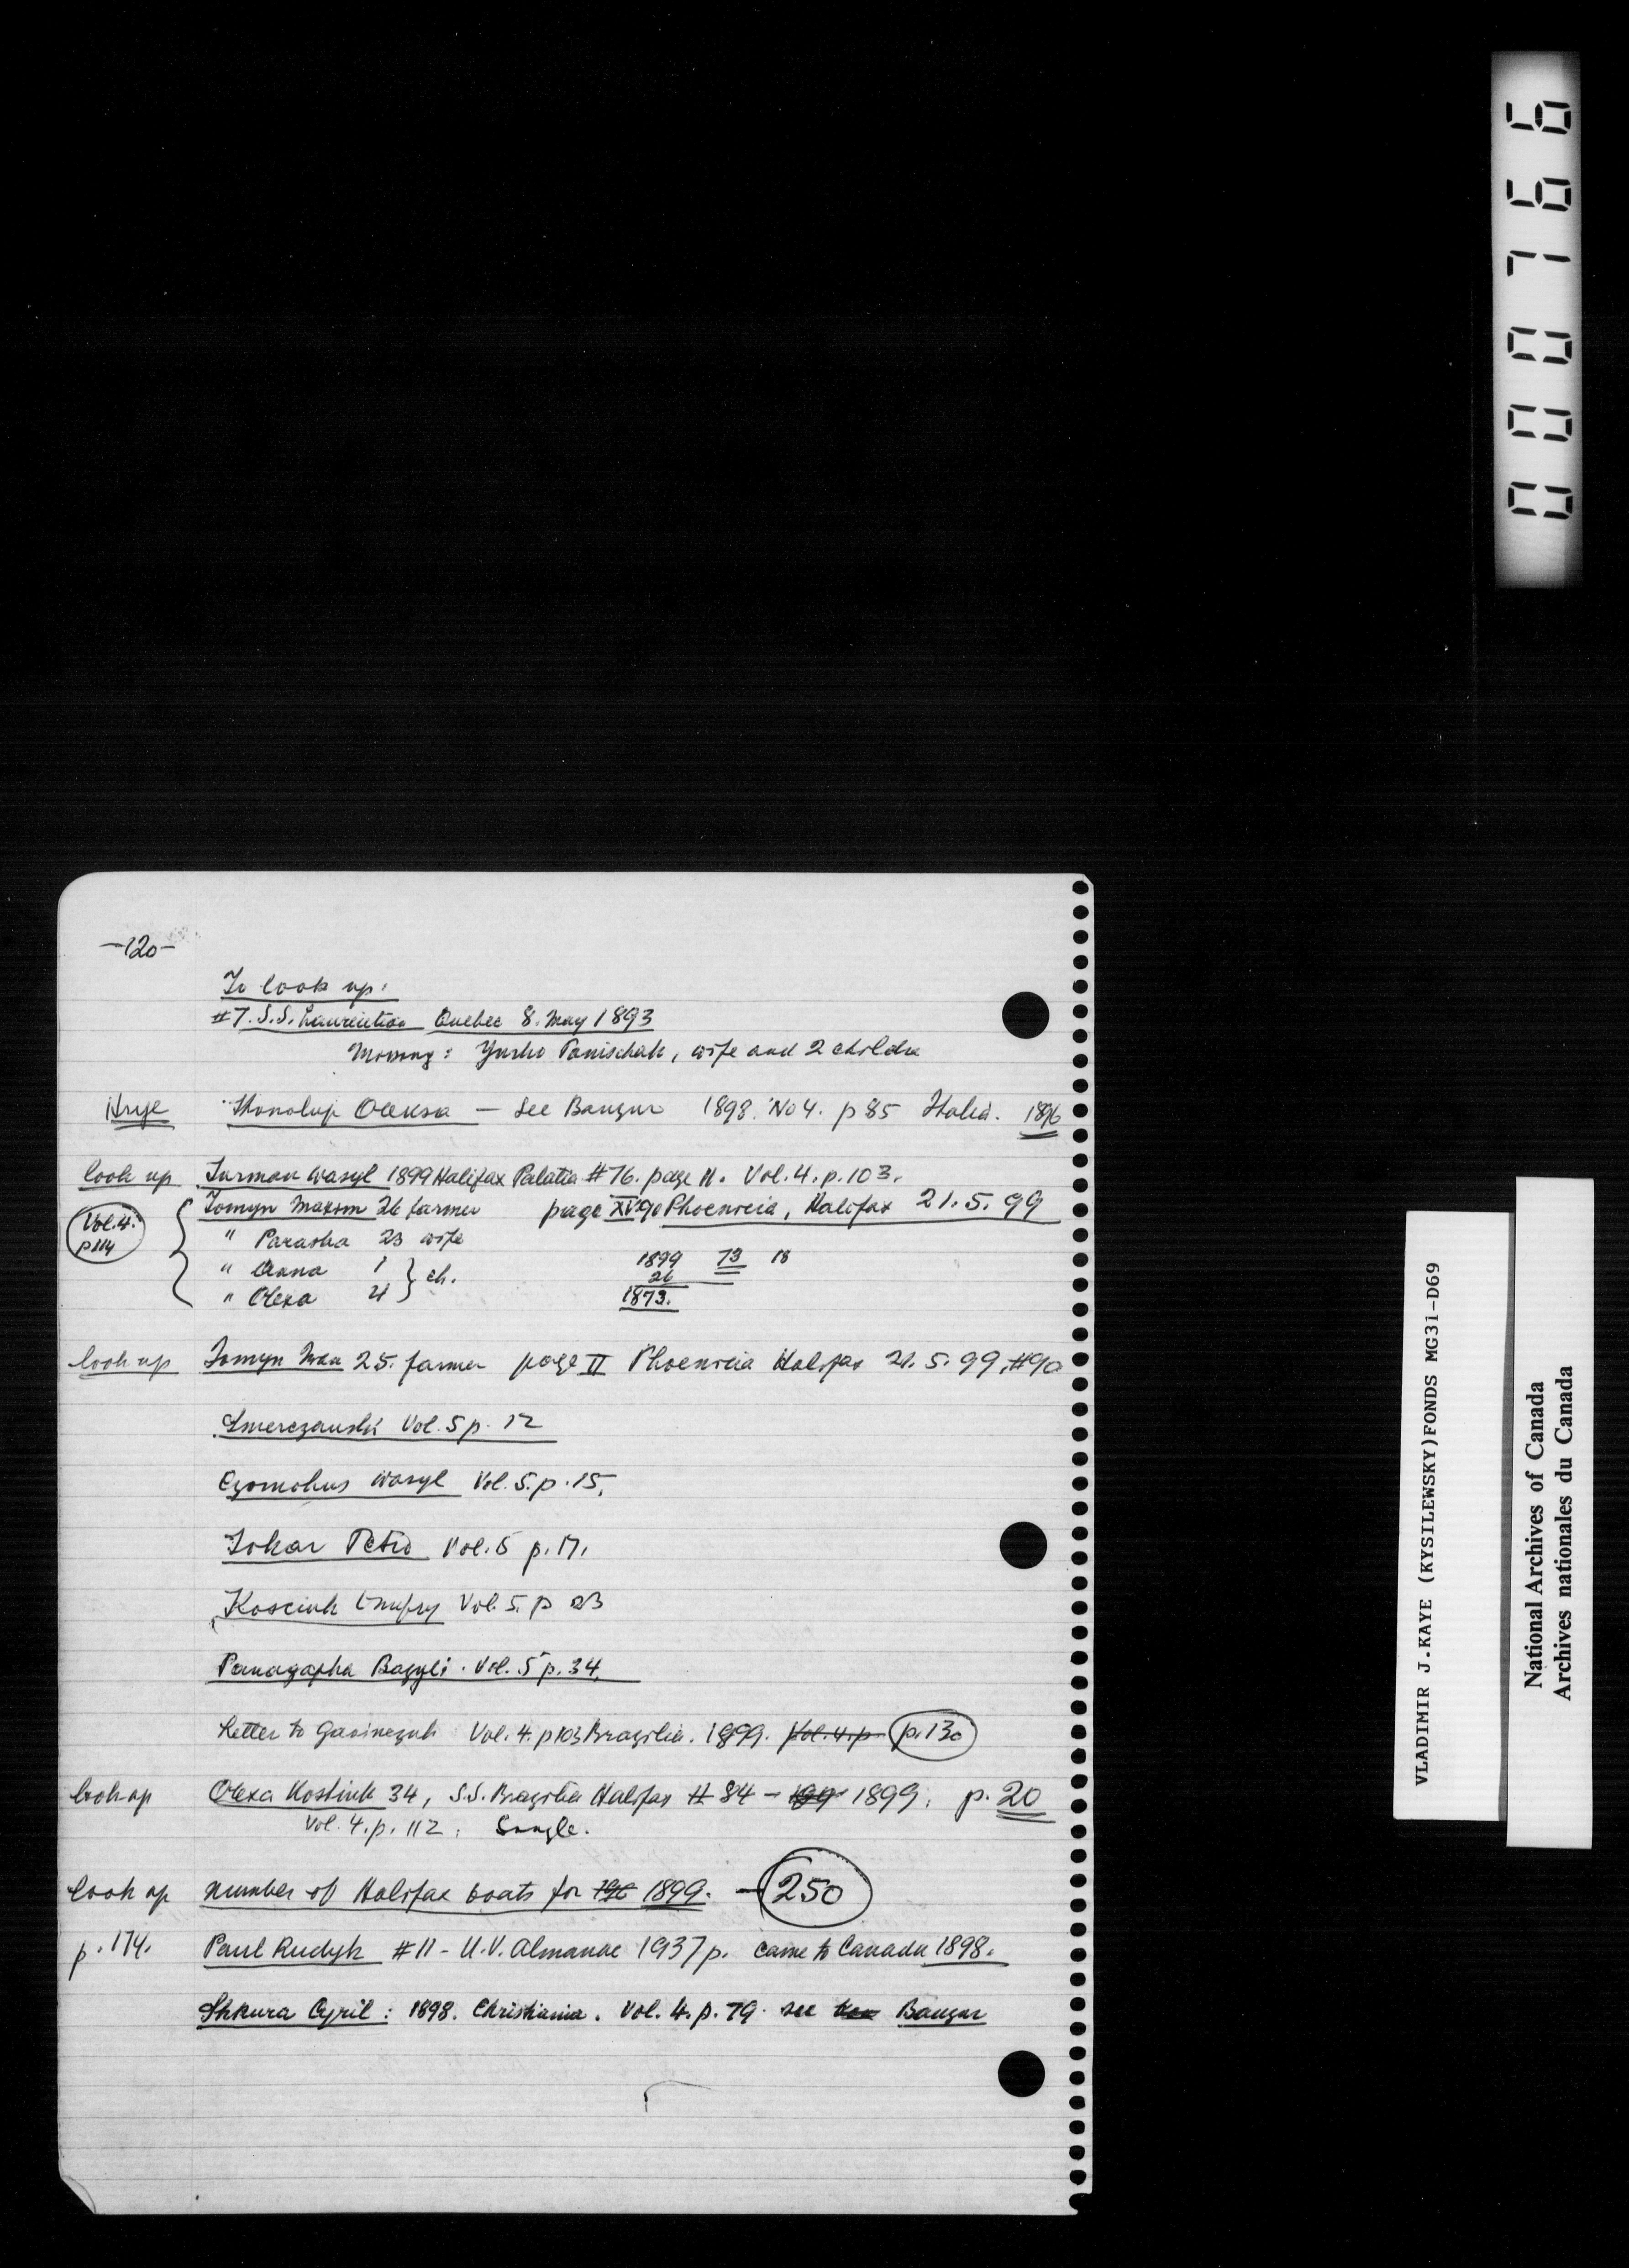 -120-
To look up:
#7. S.S. Laurentian Quebec 8. May 1893
Missing: Yurko Panischak, wife and 2 children
Hryc Shonolup Oleksa — See Banzur 1898. No 4. p 85 Italia. 1896
look up Furman Wasyl 1899 Halifax Palatia #76. page 11. Vol. 4. p. 103.
Tomyn Maksm 26 farmer page XV #90 Phoenicia, Halifax 21.5.99
Vol. 4. p 114
" Paraska 23 wife
" Anna 1 } ch. 1899 73 18
" Olexa 4 26
1873.
look up Tomyn Iwan 25. farmer page II Phoenicia Halifax 21.5.99. #90
Smerczanski Vol. 5 p. 12
Czornohus Wasyl Vol. 5. p. 15.
Tokar Petro Vol. 5 p. 17.
Kosciuk Onufry Vol. 5. p 23
Vol. 5 p. 34.
Letter to Vol. 4. p 103 Brazilia. 1899. Vol. 4. p p. 130
look up Olexa Kostiuk 34, S.S. Brazilia Halifax # 84 - 1899. p. 20
Vol. 4. p. 112. Single.
look up number of Halifax boats for 1899. — 250
p. 174. Paul Rudyk #11 - U.V. Almanac 1937 p. came to Canada 1898.
Shkura Cyril: 1898. Christiania. Vol. 4. p. 79. see Banzur
000766
VLADIMIR J.KAYE (KYSILEWSKY)FONDS MG31-D69
National Archives of Canada
Archives nationales du Canada